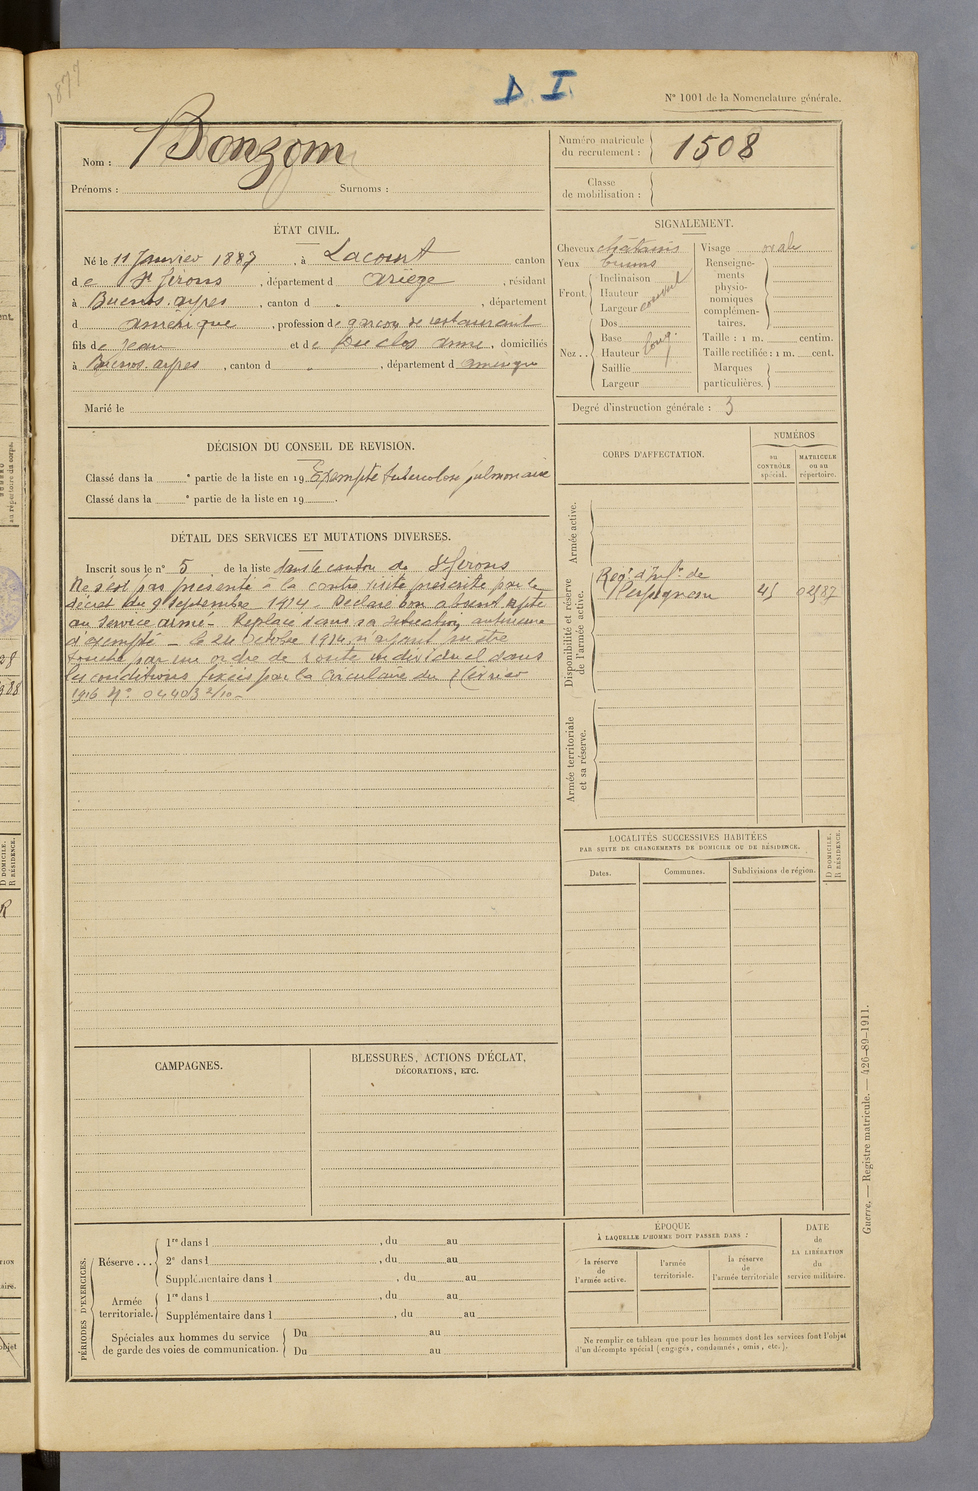 1877
D. I.
N° 1001 de la Nomenclature générale.
Nom : Bonzom
Prénoms : Surnoms :
Numéro matricule
du recrutement : 1508
Classe
de mobilisation :
ÉTAT CIVIL.
Né le 11 Janvier 1887, à Lacourt canton
de St Girons, département d Ariège, résidant
à Buenos-ayres, canton d , département
d amérique, profession de garçon de restaurant
fils de Jean et de Duclos anne, domiciliés
à Buenos-ayres, canton d , département d amérique
Marié le
SIGNALEMENT.
Cheveux châtains
Yeux bruns
Front.
Inclinaison
Hauteur
Largeur
Nez..
Dos
Base
Hauteur long
Saillie
Largeur
Visage ovale
Renseigne-
ments
physio-
nomiques
complémen-
taires.
Taille : 1 m. centim.
Taille rectifiée : 1 m. cent.
Marques
particulières.
Degré d'instruction générale : 3
DÉCISION DU CONSEIL DE REVISION.
Classé dans la e partie de la liste en 19 Exempté tuberculose pulmonaire
Classé dans la e partie de la liste en 19 .
DÉTAIL DES SERVICES ET MUTATIONS DIVERSES.
Inscrit sous le n° 5 de la liste dans le canton de St Girons
Ne s'est pas présenté à la contre visite prescrite par le
décret du 9 septembre 1914. Déclaré bon absent apte
au service armé. Replacé dans sa situation antérieure
d'exempté le 24 octobre 1914, n'ayant pu être
touché par un ordre de route individuel dans
les conditions fixées par la Circulaire du février
1916 N° 04403 2/10.
CORPS D'AFFECTATION.
NUMÉROS
au
CONTRÔLE
spécial.
MATRICULE
ou au
répertoire.
Armée active.
Disponibilité et réserve
de l'armée active.
Regt d'Infie de
Perpignan
Armée territoriale
et sa réserve.
LOCALITÉS SUCCESSIVES HABITÉES
PAR SUITE DE CHANGEMENTS DE DOMICILE OU DE RÉSIDENCE.
Dates.
Communes.
Subdivisions de région.
D DOMICILE.
R RÉSIDENCE.
CAMPAGNES.
BLESSURES, ACTIONS D'ÉCLAT,
DÉCORATIONS, ETC.
PÉRIODES D'EXERCICES.
Réserve ...
1re dans l , du au
2e dans l , du au
Supplémentaire dans l , du au
Armée
territoriale.
1re dans l , du au
Supplémentaire dans l , du au
Spéciales aux hommes du service
de garde des voies de communication.
Du au
Du au
ÉPOQUE
À LAQUELLE L'HOMME DOIT PASSER DANS :
la réserve
de
l'armée active.
l'armée
territoriale.
la réserve
de
l'armée territoriale
DATE
de
LA LIBÉRATION
du
service militaire.
Ne remplir ce tableau que pour les hommes dont les services font l'objet
d'un décompte spécial (engagés, condamnés, omis, etc.).
Guerre. — Registre matricule. — 426-89-1911.